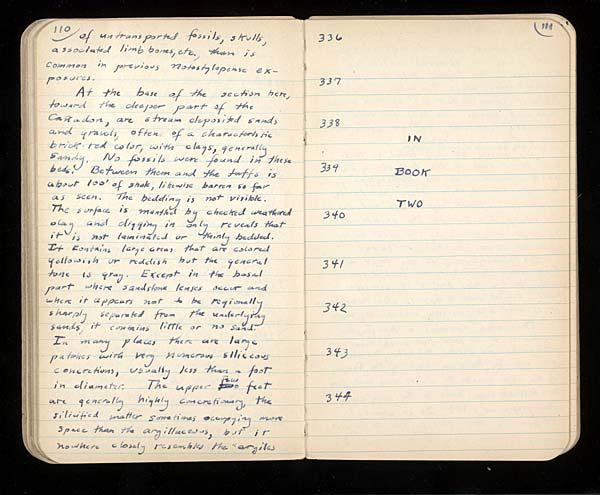 110
of untransported fossils, skulls,
associated limb bones, etc. than is
common in previous Notostylopense ex-
posures.
At the base of the section here,
toward the deeper part of the
Cañadon, are stream deposited sands
and gravels, often of a characteristic
brick red color, with clays, generally
sandy. No fossils were found in these
beds. Between them and the tuffs is
about 100' of shale, likewise barren so far
as seen. The bedding is not visible.
The surface is mantled by checked weathered
clay and digging in only reveals that
it is not laminated or thinly bedded.
It contains large areas that are colored
yellowish or reddish but the general
tone is gray. Except in the basal
part where sandstone lenses occur and
where it appears not to be regionally
sharply separated from the underlying
sands, it contains little or no sand.
In many places there are large
patches with very numerous siliceous
concretions, usually less than a foot
in diameter. The upper few feet
are generally highly concretionary, the
silicified matter sometimes occupying more
space than the argillaceous, but it
nowhere closely resembles the argiles
111
336
337
338
IN
339
BOOK
TWO
340
341
342
343
344